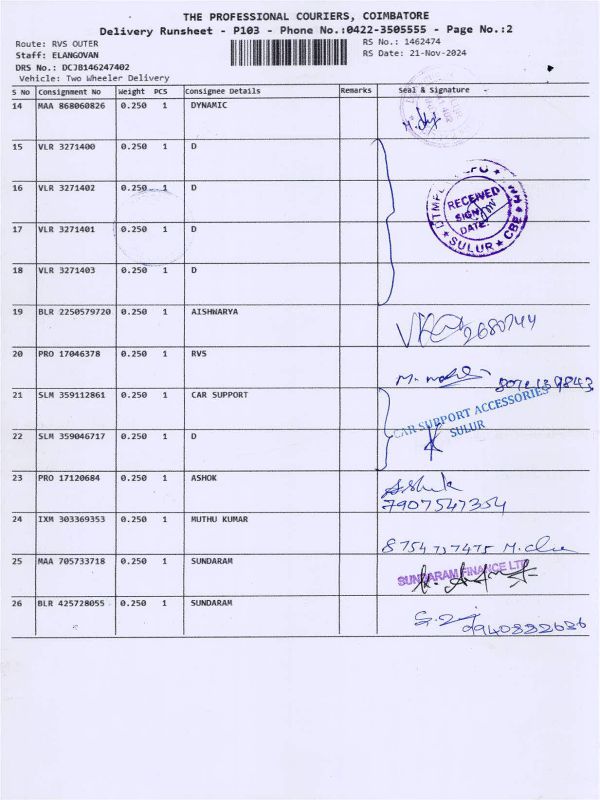 THE PROFESSIONAL COURIERS, COIMBATORE
Delivery Runsheet - P103 - Phone No.:0422-3505555 - Page No.:2
Route: RVS OUTER
RS No.: 1462474
Staff: ELANGOVAN
RS Date: 21-Nov-2024
DRS No.: DCJB146247402
Vehicle: Two Wheeler Delivery
S No Consignment No Weight PCS Consignee Details Remarks Seal & Signature
14 MAA 868060826 0.250 1 DYNAMIC
15 VLR 3271400 0.250 1 D
16 VLR 3271402 0.250 1 D
RECEIVED
SIGN
DATE:
SULUR CBE
17 VLR 3271401 0.250 1 D
18 VLR 3271403 0.250 1 D
19 BLR 2250579720 0.250 1 AISHWARYA
20 PRO 17046378 0.250 1 RVS
21 SLM 359112861 0.250 1 CAR SUPPORT
CAR SUPPORT ACCESSORIES
SULUR
22 SLM 359046717 0.250 1 D
23 PRO 17120684 0.250 1 ASHOK
Ashok
7907547354
24 IXM 303369353 0.250 1 MUTHU KUMAR
8754737475
25 MAA 705733718 0.250 1 SUNDARAM
SUNDARAM FINANCE LTD
26 BLR 425728055 0.250 1 SUNDARAM